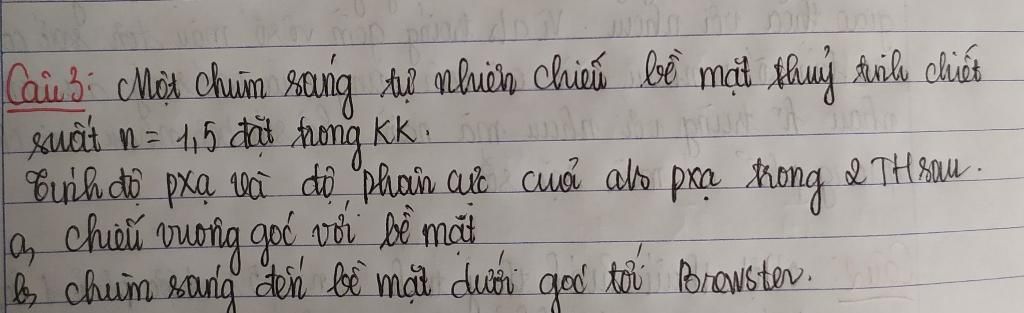 Câu 3: Một chùm sáng tự nhiên chiếu bề mặt thuỷ tinh chiết
suất n = 1,5 đặt trong KK.
Tính độ pxạ và độ phân cực của a/s pxạ trong 2 TH sau.
a, chiếu vuông góc với bề mặt
b, chùm sáng đến bề mặt dưới góc tới Brewster.